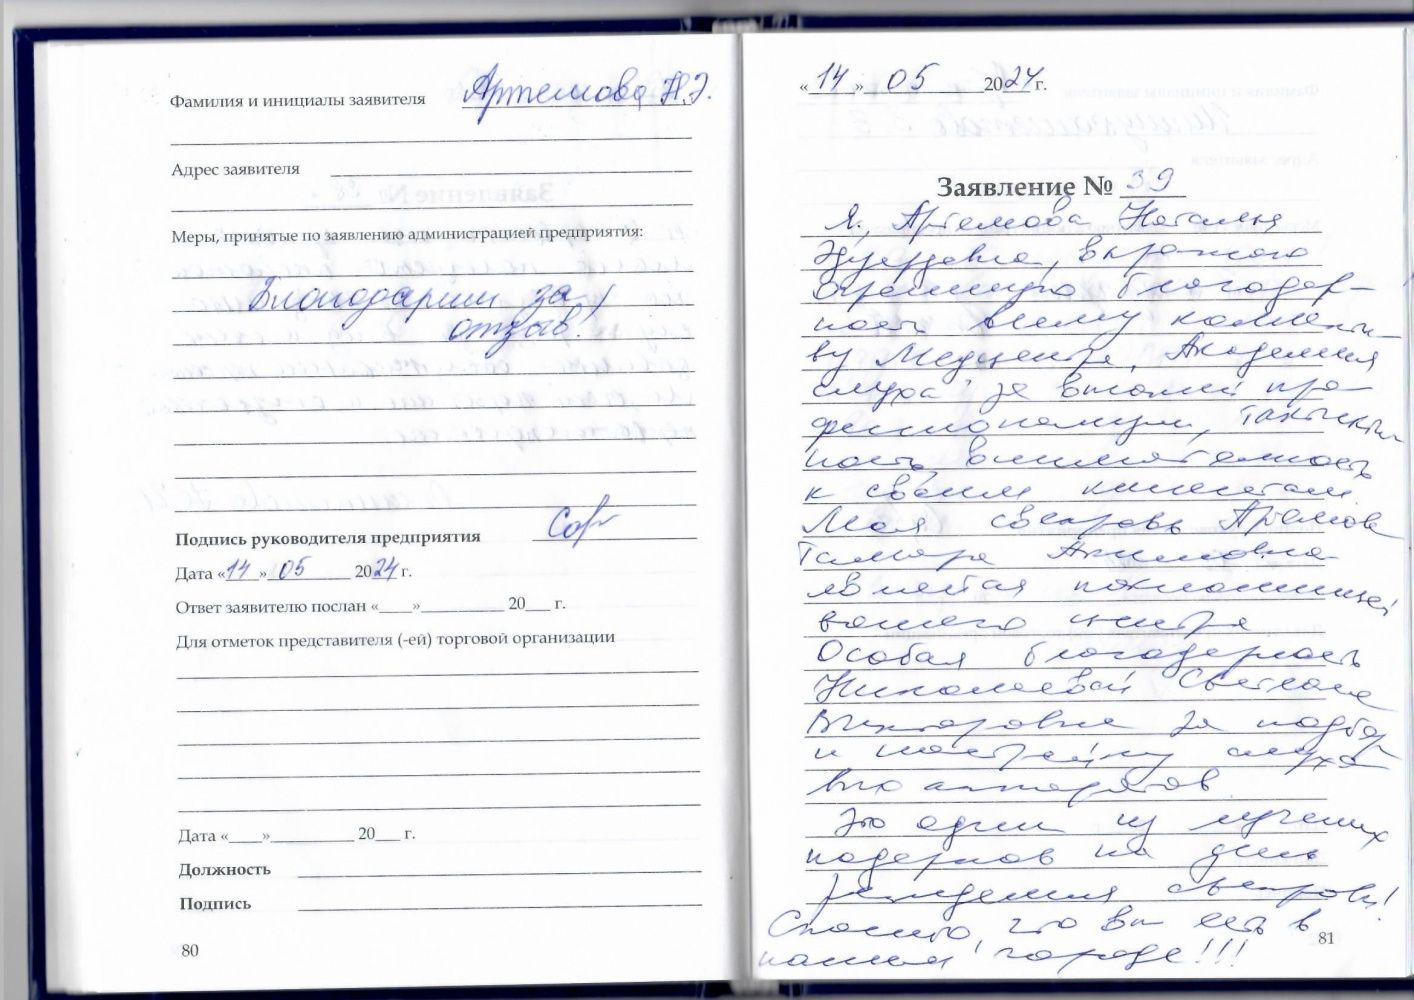 Фамилия и инициалы заявителя Артемова Н.Э.
Адрес заявителя
Меры, принятые по заявлению администрацией предприятия:
Благодарим за
отзыв!
Подпись руководителя предприятия
Дата «14» 05 2024 г.
Ответ заявителю послан «___» ______ 20__ г.
Для отметок представителя (-ей) торговой организации
Дата «___» ______ 20__ г.
Должность
Подпись
80
«14» 05 2024 г.
Заявление № 39
Я, Артемова Наталья
Эдуардовна, выражаю
огромную благодар-
ность всему коллекти-
ву Медцентра "Академия
слуха" за высокий про-
фессионализм, тактич
ность, внимательность
к своим клиентам.
Моя свекровь Артемова
Тамара Акимовна
является поклонницей
вашего центра
Особая благодарность
Николаевой Светлане
Викторовне за подбор
и настройку слухо
вых аппаратов.
Это один из лучших
подарков на день
рождения свекрови!
Спасибо, что вы есть в
нашем городе!!!
81